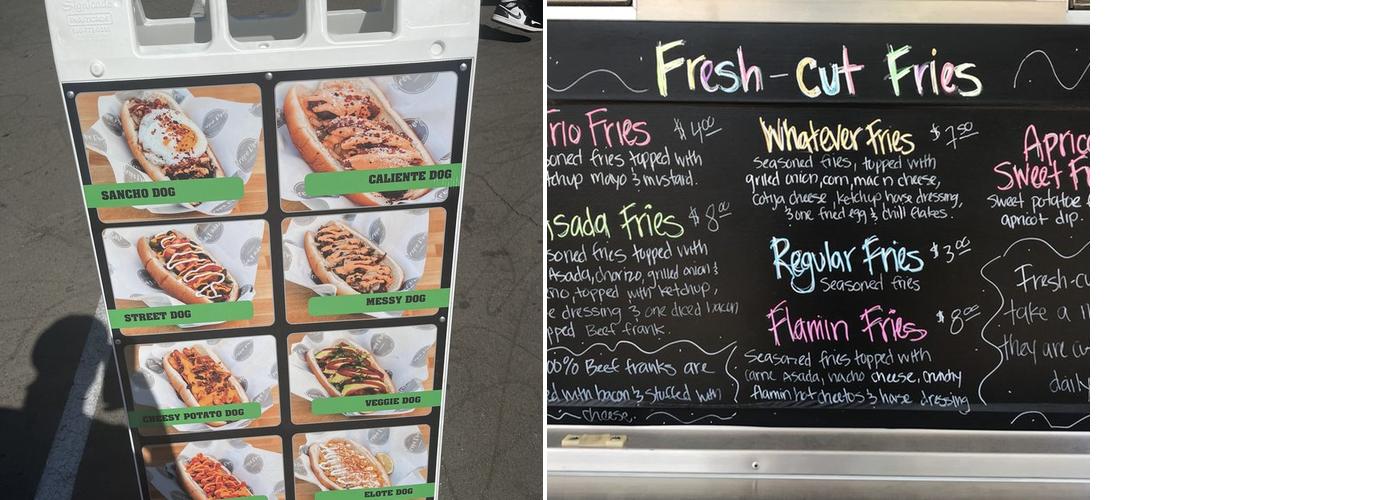 SANCHO DOG
CALIENTE DOG
STREET DOG
MESSY DOG
CHEESY POTATO DOG
VEGGIE DOG
ELOTE DOG
Fresh-cut Fries
Trio Fries $4.00
soned fries topped with
tchup mayo & mustard.
Asada Fries $8.00
soned fries topped with
Asada, chorizo, grilled onion &
no, topped with ketchup,
e dressing & one diced bacon
pped Beef frank.
00% Beef franks are
ed with bacon & stuffed with
cheese.
Whatever Fries $7.50
Seasoned fries, topped with
grilled onion, corn, mac n cheese,
cotija cheese, ketchup horse dressing,
& one fried egg & chili flakes.
Regular Fries $3.00
Seasoned fries
Flamin Fries $8.00
Seasoned fries topped with
Carne Asada, nacho cheese, crunchy
flamin hot cheetos & horse dressing
Aprico
Sweet Fr
Sweet potatoe
apricot dip.
Fresh-cu
take a
they are cu
daily